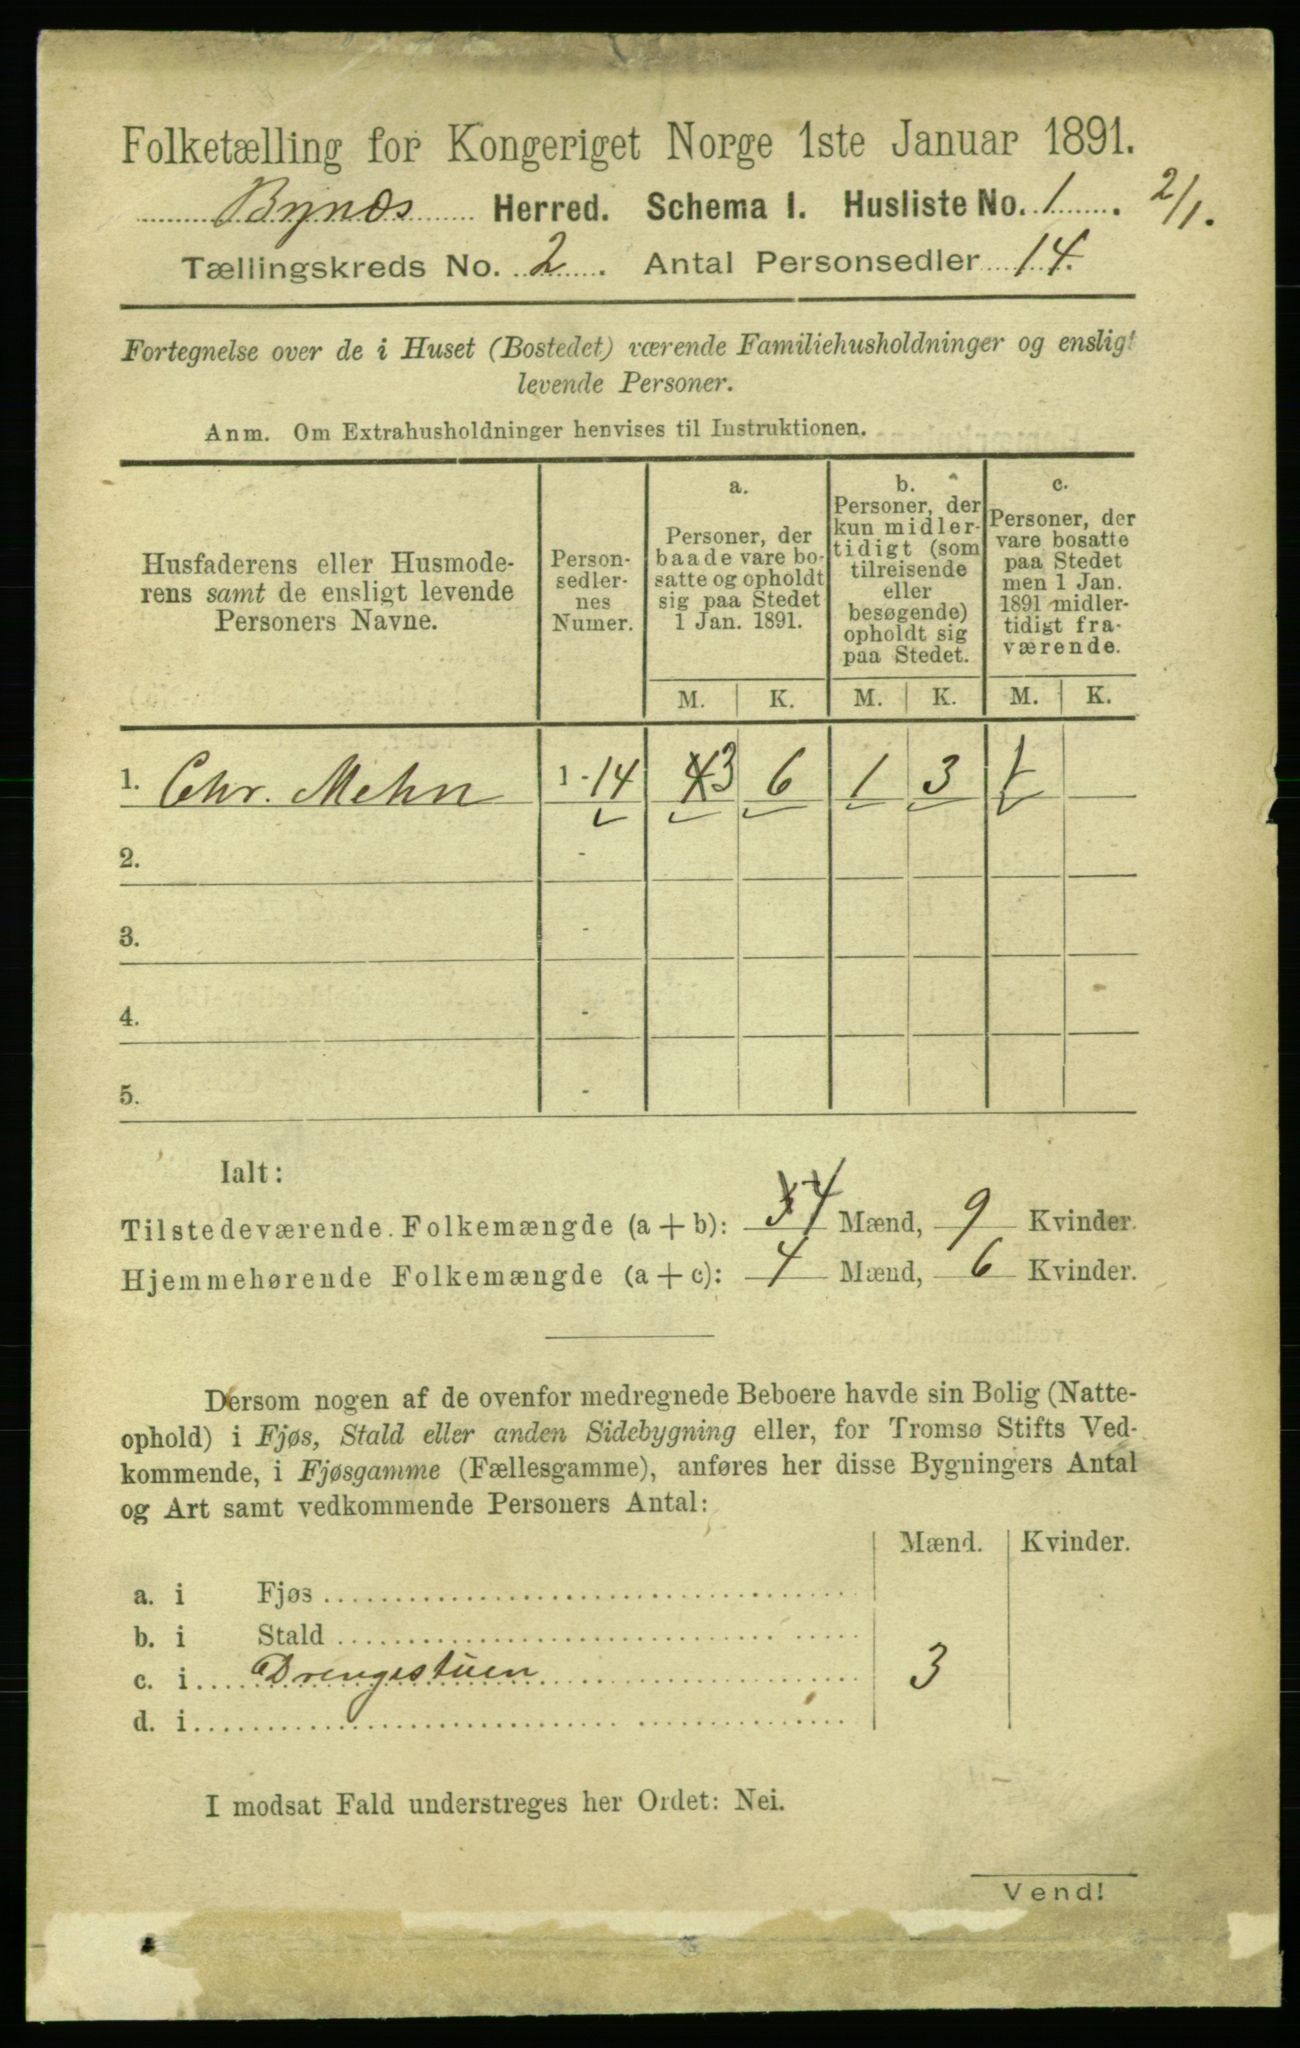 Folketælling for Kongeriget Norge 1ste Januar 1891.
Bynæs Herred. Schema I. Husliste No. 1. 2/1.
Tællingskreds No. 2. Antal Personsedler 14.
Fortegnelse over de i Huset (Bostedet) værende Familiehusholdninger og ensligt
levende Personer.
Anm. Om Extrahusholdninger henvises til Instruktionen.
Husfaderens eller Husmode-
rens samt de ensligt levende
Personers Navne.
Person-
sedler-
nes
Numer.
a.
Personer, der
baade vare bo-
satte og opholdt
sig paa Stedet
1 Jan. 1891.
b.
Personer, der
kun midler-
tidigt (som
tilreisende
eller
besøgende)
opholdt sig
paa Stedet.
c.
Personer, der
vare bosatte
paa Stedet
men 1 Jan.
1891 midler-
tidigt fra-
værende.
M. K. M. K. M. K.
1. Chr. Mehn 1-14 43 6 1 3 1
2. -
3. -
4. -
5. -
Ialt:
Tilstedeværende Folkemængde (a + b): 4 Mænd, 9 Kvinder.
Hjemmehørende Folkemængde (a + c): 4 Mænd, 6 Kvinder.
Dersom nogen af de ovenfor medregnede Beboere havde sin Bolig (Natte-
ophold) i Fjøs, Stald eller anden Sidebygning eller, for Tromsø Stifts Ved-
kommende, i Fjøsgamme (Fællesgamme), anføres her disse Bygningers Antal
og Art samt vedkommende Personers Antal:
Mænd. Kvinder.
a. i Fjøs
b. i Stald
c. i Drengestuen 3
d. i
I modsat Fald understreges her Ordet: Nei.
Vend!